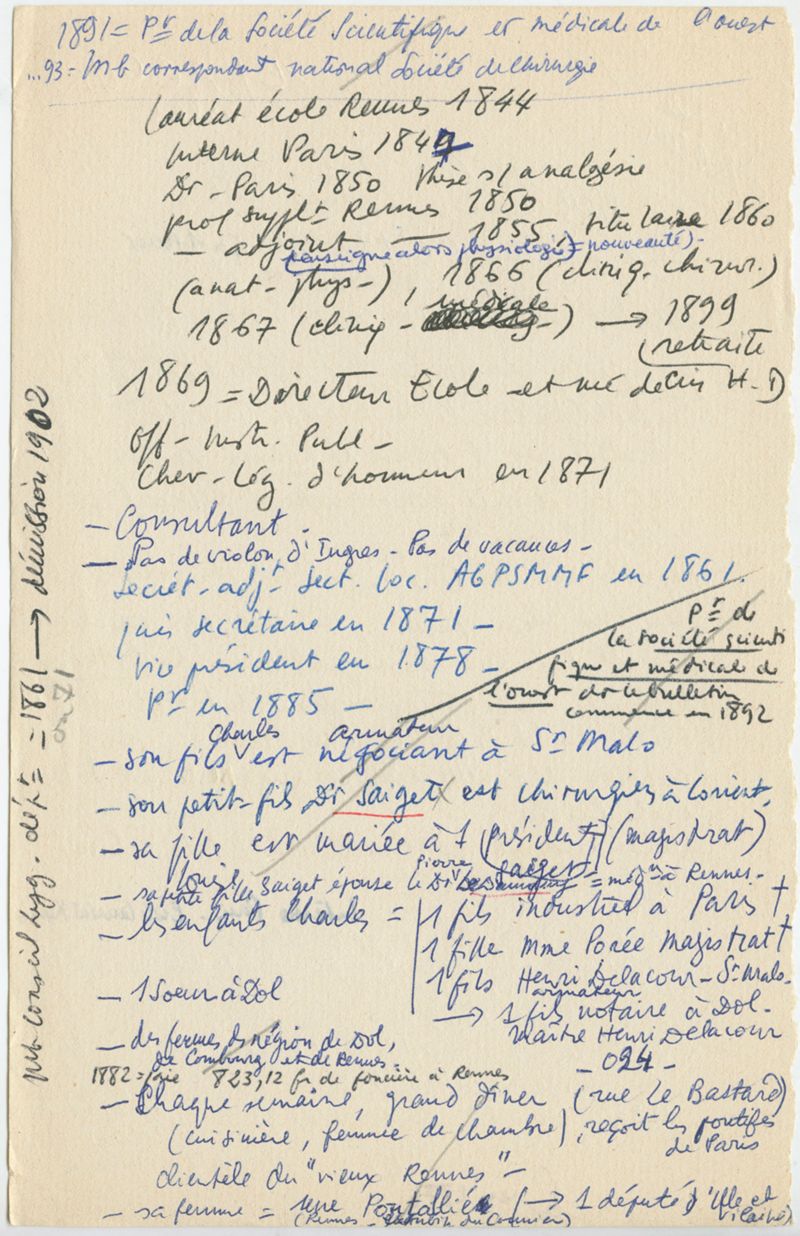 1891 = Pr de la Société Scientifique et médicale de l'ouest
...93 = Mb correspondant national Société de chirurgie
lauréat école Rennes 1844
interne Paris 1847
Dr - Paris 1850 thèse s/ analgésie
prof supplt Rennes 1850
— adjoint — 1855, titulaire 1860
(enseigne alors physiologie = nouveauté) -
(anat - phys -), 1866 (cliniq. chirur.)
1867 (cliniq - médicale) → 1899
(retraite
1869 = Directeur Ecole - et médecin H-D
Off - Instr. Publ -
Chev - Lég. d'honneur en 1871
- Consultant -
- Pas de violon d'Ingres - Pas de vacances -
Secrét - adjt sect. loc. AGPSMMF en 1861.
puis secrétaire en 1871 -
vice président en 1878 -
Pr en 1885 -
Pr de
la société scienti
fique et médicale de
l'ouest dt le bulletin
commence en 1892
- son fils Charles est armateur négociant à St Malo
- son petit-fils Dr Saiget est chirurgien à Lorient,
- sa fille est mariée à 1 (président) (magistrat)
Saiget
- sa petite fille Saiget épouse le Dr Pierre = médn à Rennes -
- les enfants Charles = 1 fils industriel à Paris †
1 fille Mme Porée magistrat †
1 fils Henri Delacour - St Malo -
armateur
- 1 Soeur à Dol
→ 1 fils notaire à Dol -
Maître Henri Delacour
- 024 -
- des fermes ds région de Dol,
de Combourg et de Rennes -
1882 = paie 823,12 fr de foncière à Rennes
- Chaque semaine, grand dîner (rue Le Bastard)
(cuisinière, femme de chambre), reçoit les pontifes
de Paris
clientèle du "vieux Rennes" -
- sa femme = Pontallié (→ 1 député d'Ille et
Vilaine)
(Rennes - du Cormier)
mb Conseil hyg. dépt = 1861 → démission 1902
ou 71